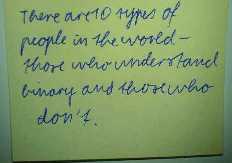 There are 10 types of
people in the world –
those who understand
binary and those who
don't.